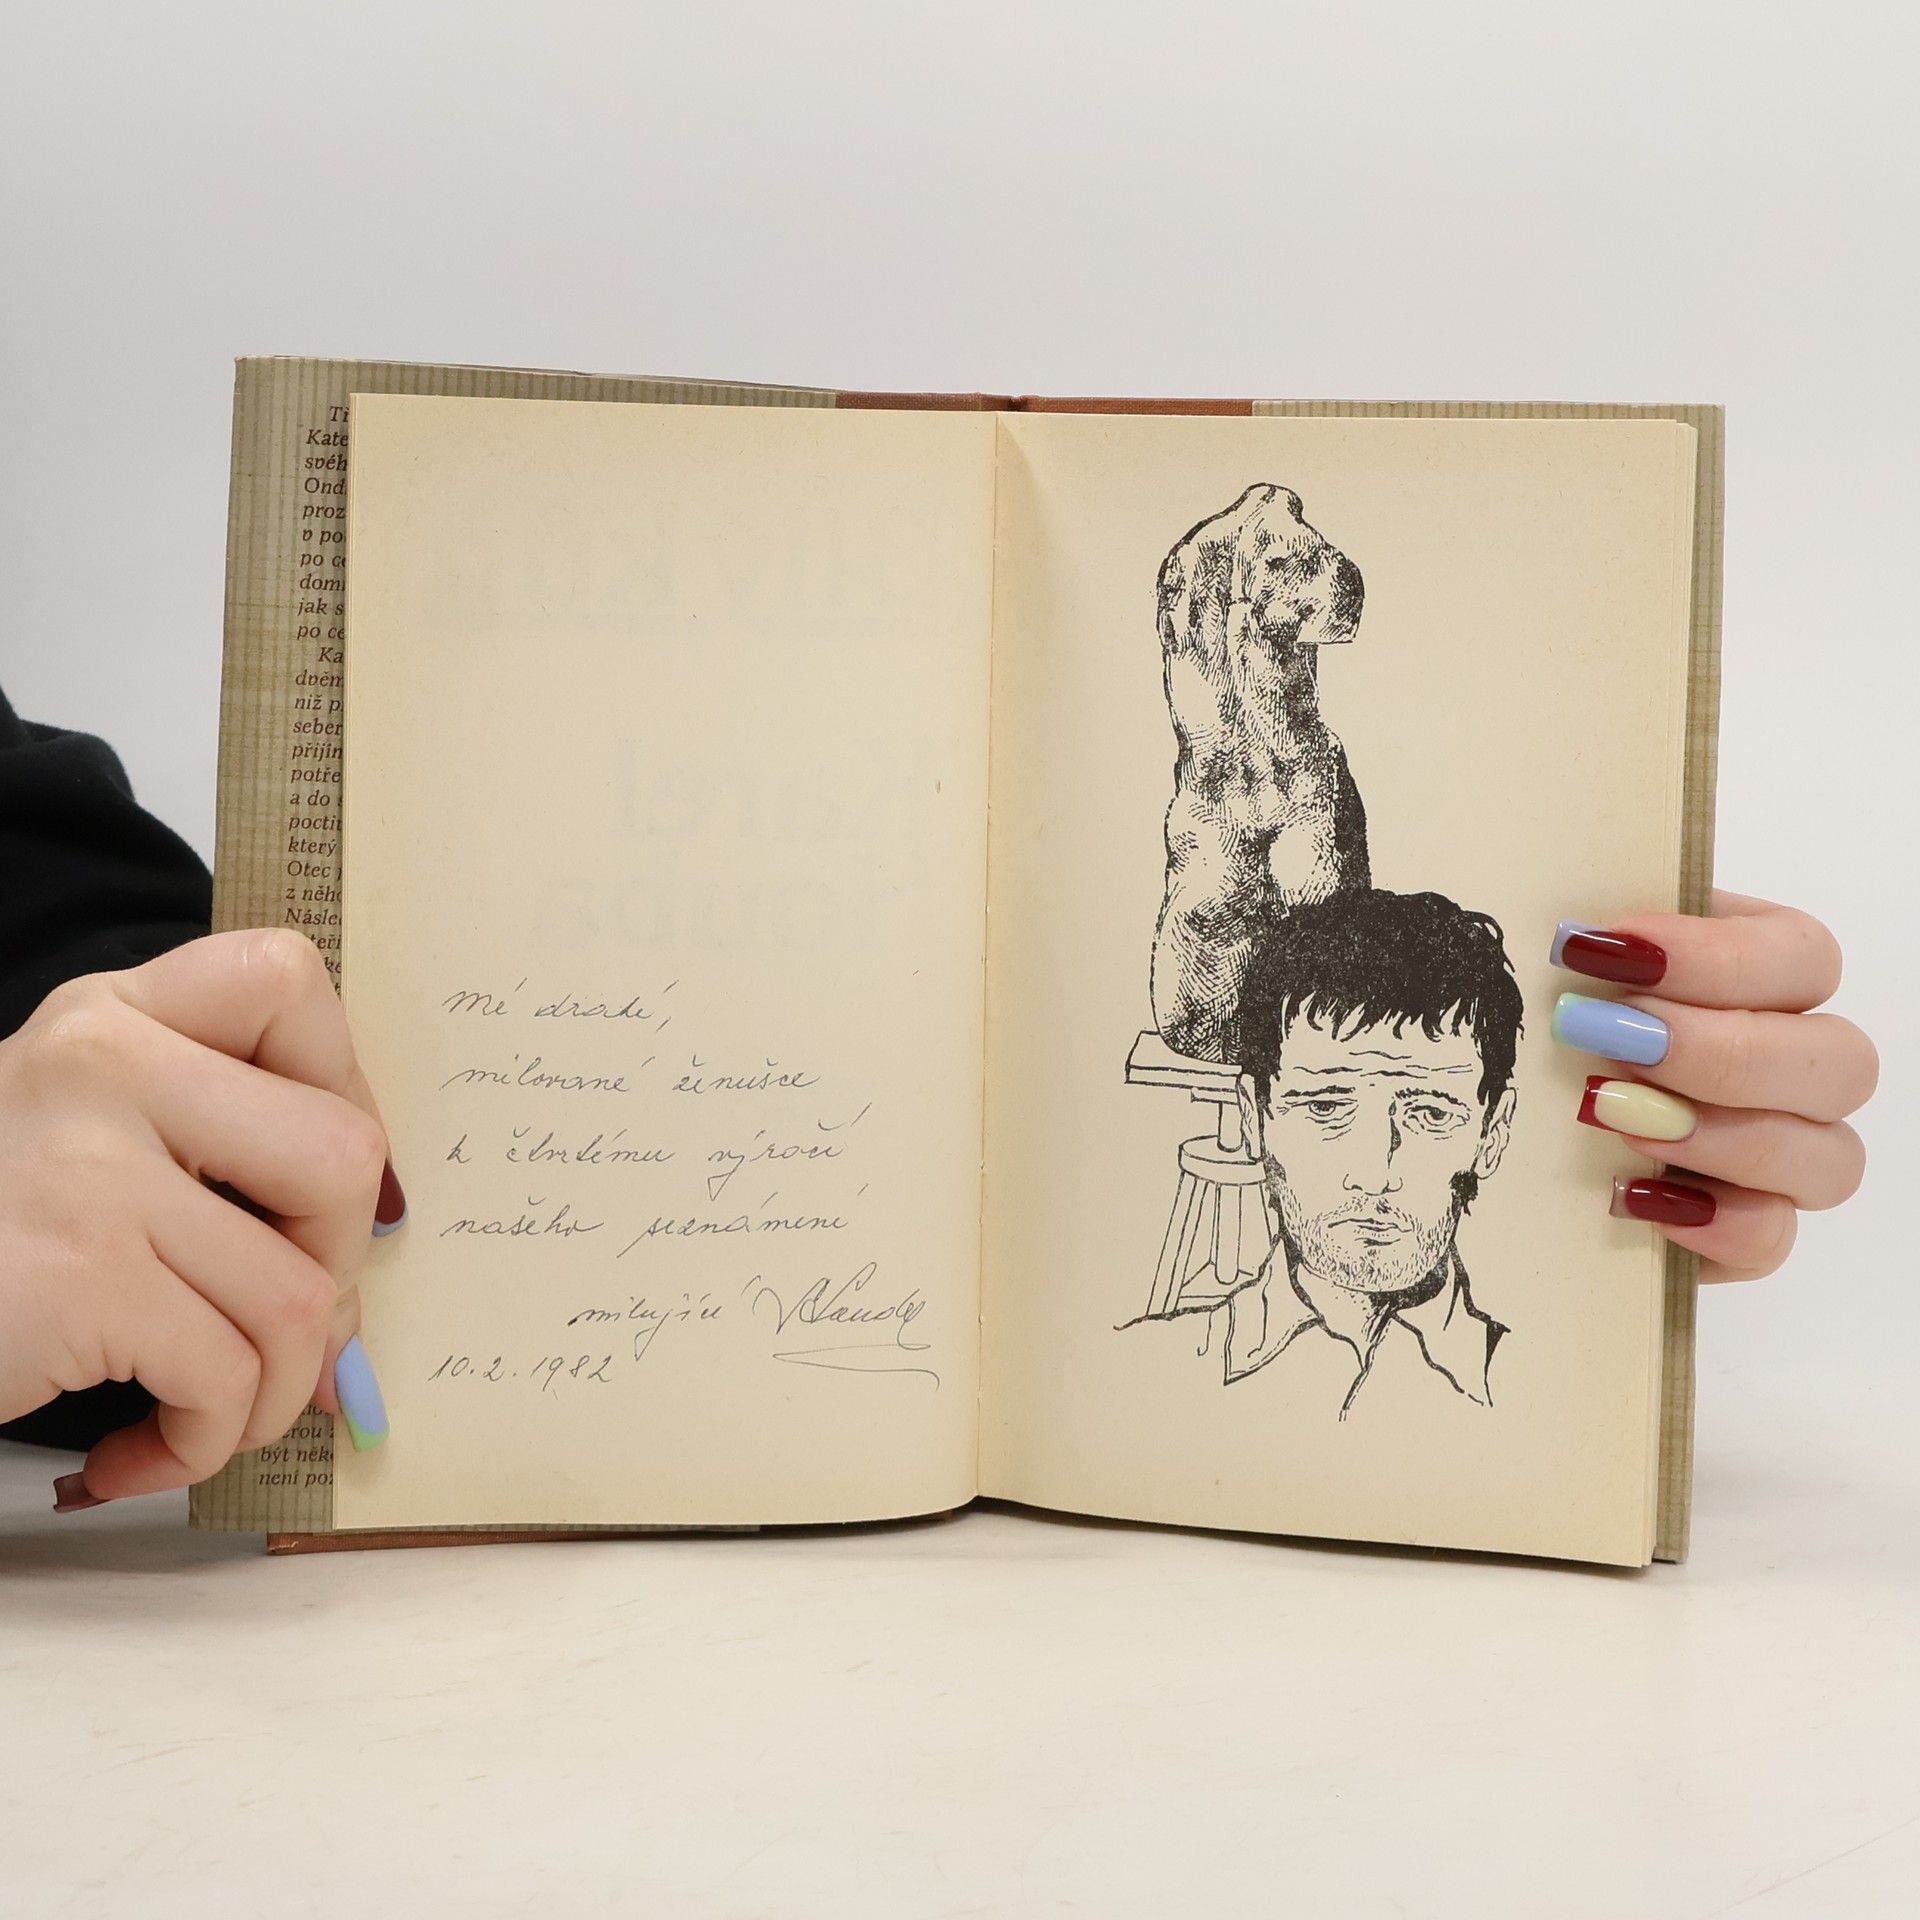 Tř
Kate
svéh
Ond
proz
v po
po ce
dom
jak s
po ce
Ka
dvěm
niž p
seber
přijín
potře
a do s
poctiv
který
Otec p
z něho
Násle
teři
ke
erou z
být něk
není poz
Mé drahé,
milované ženušce
k čtvrtému výročí
našeho seznámení
milující
10. 2. 1982